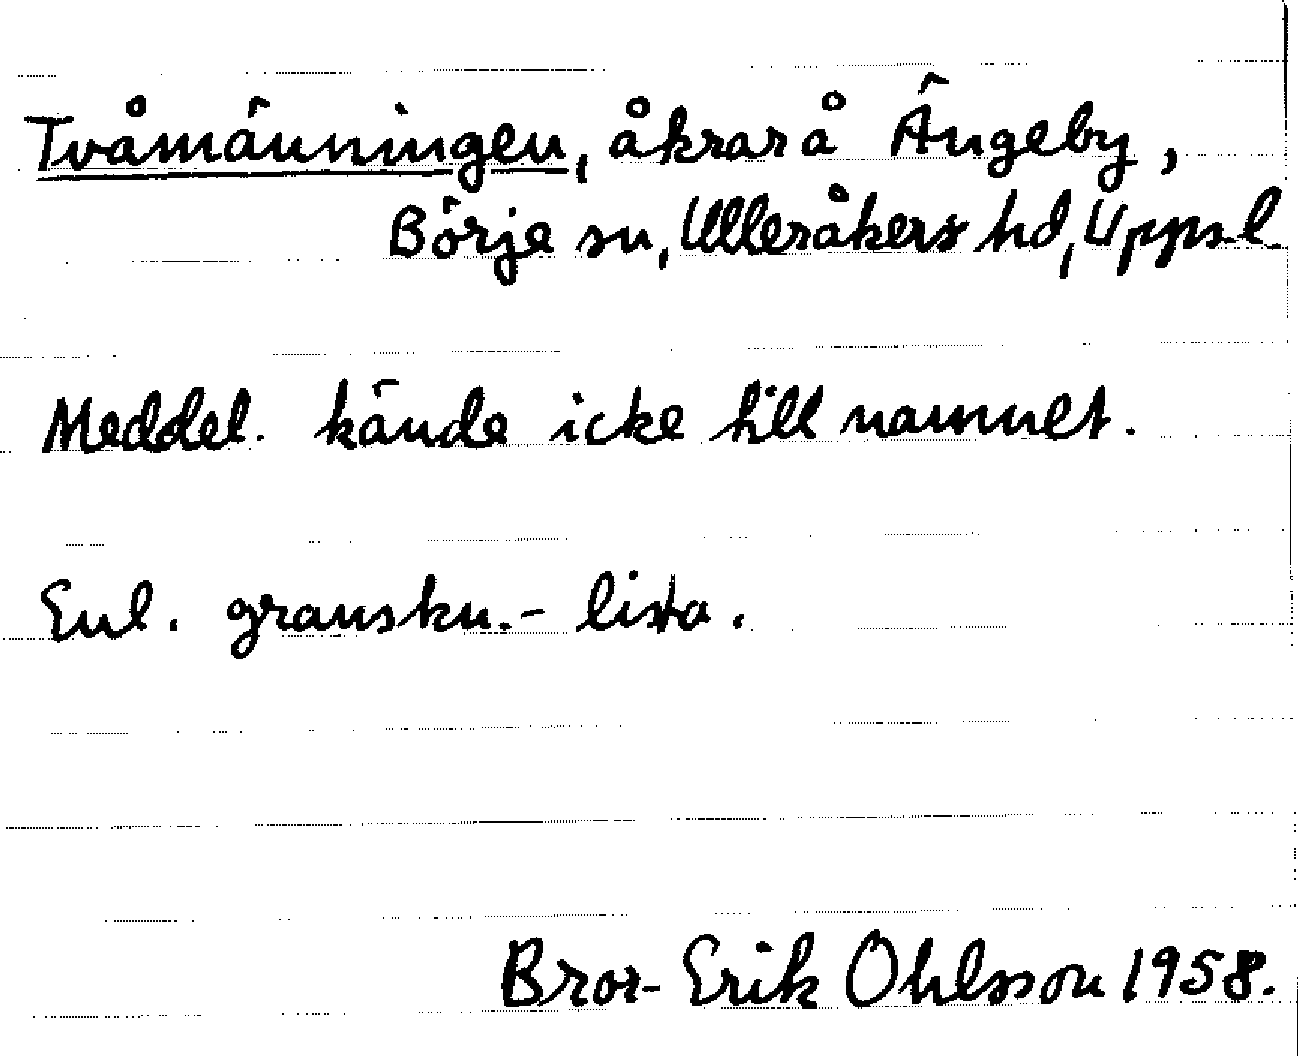 Tvåmänningen, åkrar å Ängeby,
Börje sn, Ulleråkers hd, Uppsl.
Meddel. kände icke till namnet.
Enl. granskn.- lista.
Bror-Erik Ohlsson 1958.